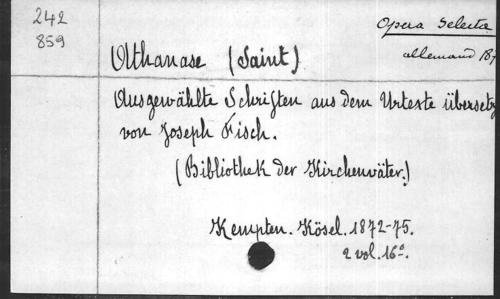 242
859
Opera Selecta
allemand 187
Athanase (Saint)
Ausgewählte Schriften aus dem Urtexte übersetz
von Joseph Fisch.
(Bibliothek der Kirchenväter.)
Kempten. Kösel. 1872-75.
2 vol. 16°.